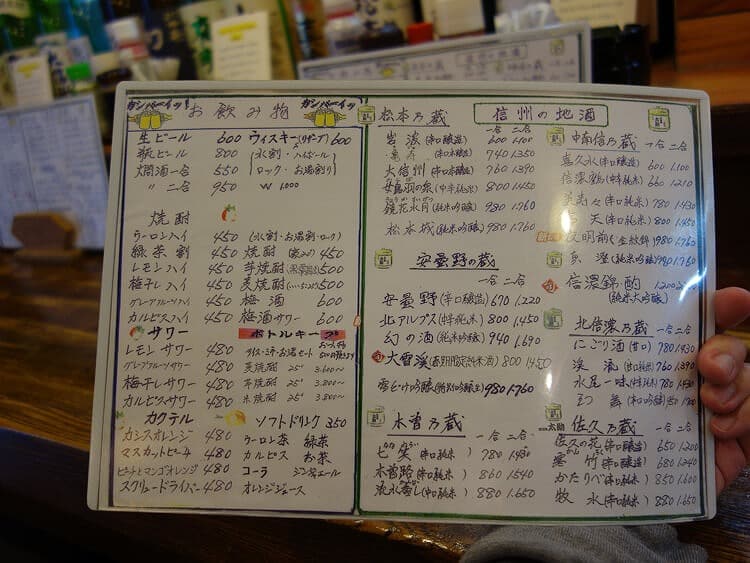 カンパーイッ! お飲み物 カンパーイッ!
生ビール 600 ウィスキー(リザーブ) 600
瓶ビール 800 (水割・ハイボール
燗酒一合 550 ロック・お湯割り)
〃 二合 950 W 1.000
焼酎
ウーロンハイ 450 (水割・お湯割・ロック)
緑茶割 450 焼酎 (麦入り) 450
レモンハイ 450 芋焼酎 500
梅干しハイ 450 麦焼酎 500
グレープフルーツハイ 450 梅酒 500
カルピスハイ 450 梅酒サワー 600
サワー ボトルキープ
レモンサワー 480 アイス・ミネ・お湯セット
グレープフルーツサワー 480 麦焼酎 25° 3.600〜
梅干しサワー 480 芋焼酎 25° 3.800〜
カルピスサワー 480 米焼酎 25° 3.800〜
カクテル ソフトドリンク 350
カシスオレンジ 480 ウーロン茶 緑茶
マスカットピーチ 480 カルピス お茶
ピーチとマンゴオレンジ 480 コーラ ジンジャエール
スクリュードライバー 480 オレンジジュース
信州の地酒
松本乃蔵 一合 二合
岩波 (辛口醸造) 600 1.100
亀寿 740 1.350
大信州 (辛口本醸造) 760 1.390
女鳥羽の泉 (中辛純米) 800 1.450
鏡花水月 (純米吟醸) 980 1.760
松本城 (純米吟醸) 980 1.760
安曇野の蔵
一合 二合
安曇野 (辛口醸造) 670 1.220
北アルプス (中辛純米) 800 1.450
幻の酒 (辛口純米) 940 1.690
大雪渓 (夏期限定純米酒) 800 1.450
雪どけ吟醸 (特別吟醸生) 980 1.760
木曽乃蔵 一合 二合
七笑 (辛口純米) 780 1.430
木曽路 (辛口純米) 860 1.540
流水蔵し (辛口純米) 880 1.650
中南信乃蔵 一合 二合
喜久水 (辛口醸造) 600 1.100
信濃鶴 (中辛純米) 660 1.210
(辛口純米) 780 1.430
(辛口純米) 800 1.450
夜明前 (生放酔) 980 1.760
(純米吟醸) 980 1.760
信濃錦・酌 1.200
(純米大吟醸)
北信濃乃蔵 一合 二合
にごり酒 (甘口) 780 1.430
渓流 (辛口) 760 1.390
水尾一味 (中辛純米) 780 1.430
佐久乃蔵
一合 二合
佐久の花 (辛口醸造) 650 1.200
寒竹 (辛口醸造) 680 1.240
かたりべ (辛口純米) 850 1.550
牧水 (辛口純米) 880 1.650